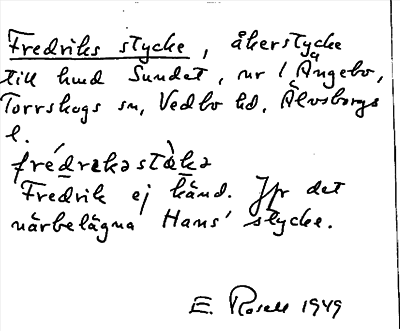 Fredriks stycke, åkerstycke
till hmd Sundet, nr 1 Ängebo,
Torrskogs sn, Vedbo hd, Älvsborgs
l.
fré̱drəkəstàkə
Fredrik ej känd. Jfr det
närbelägna Hans' stycke.
E. Rosell 1949